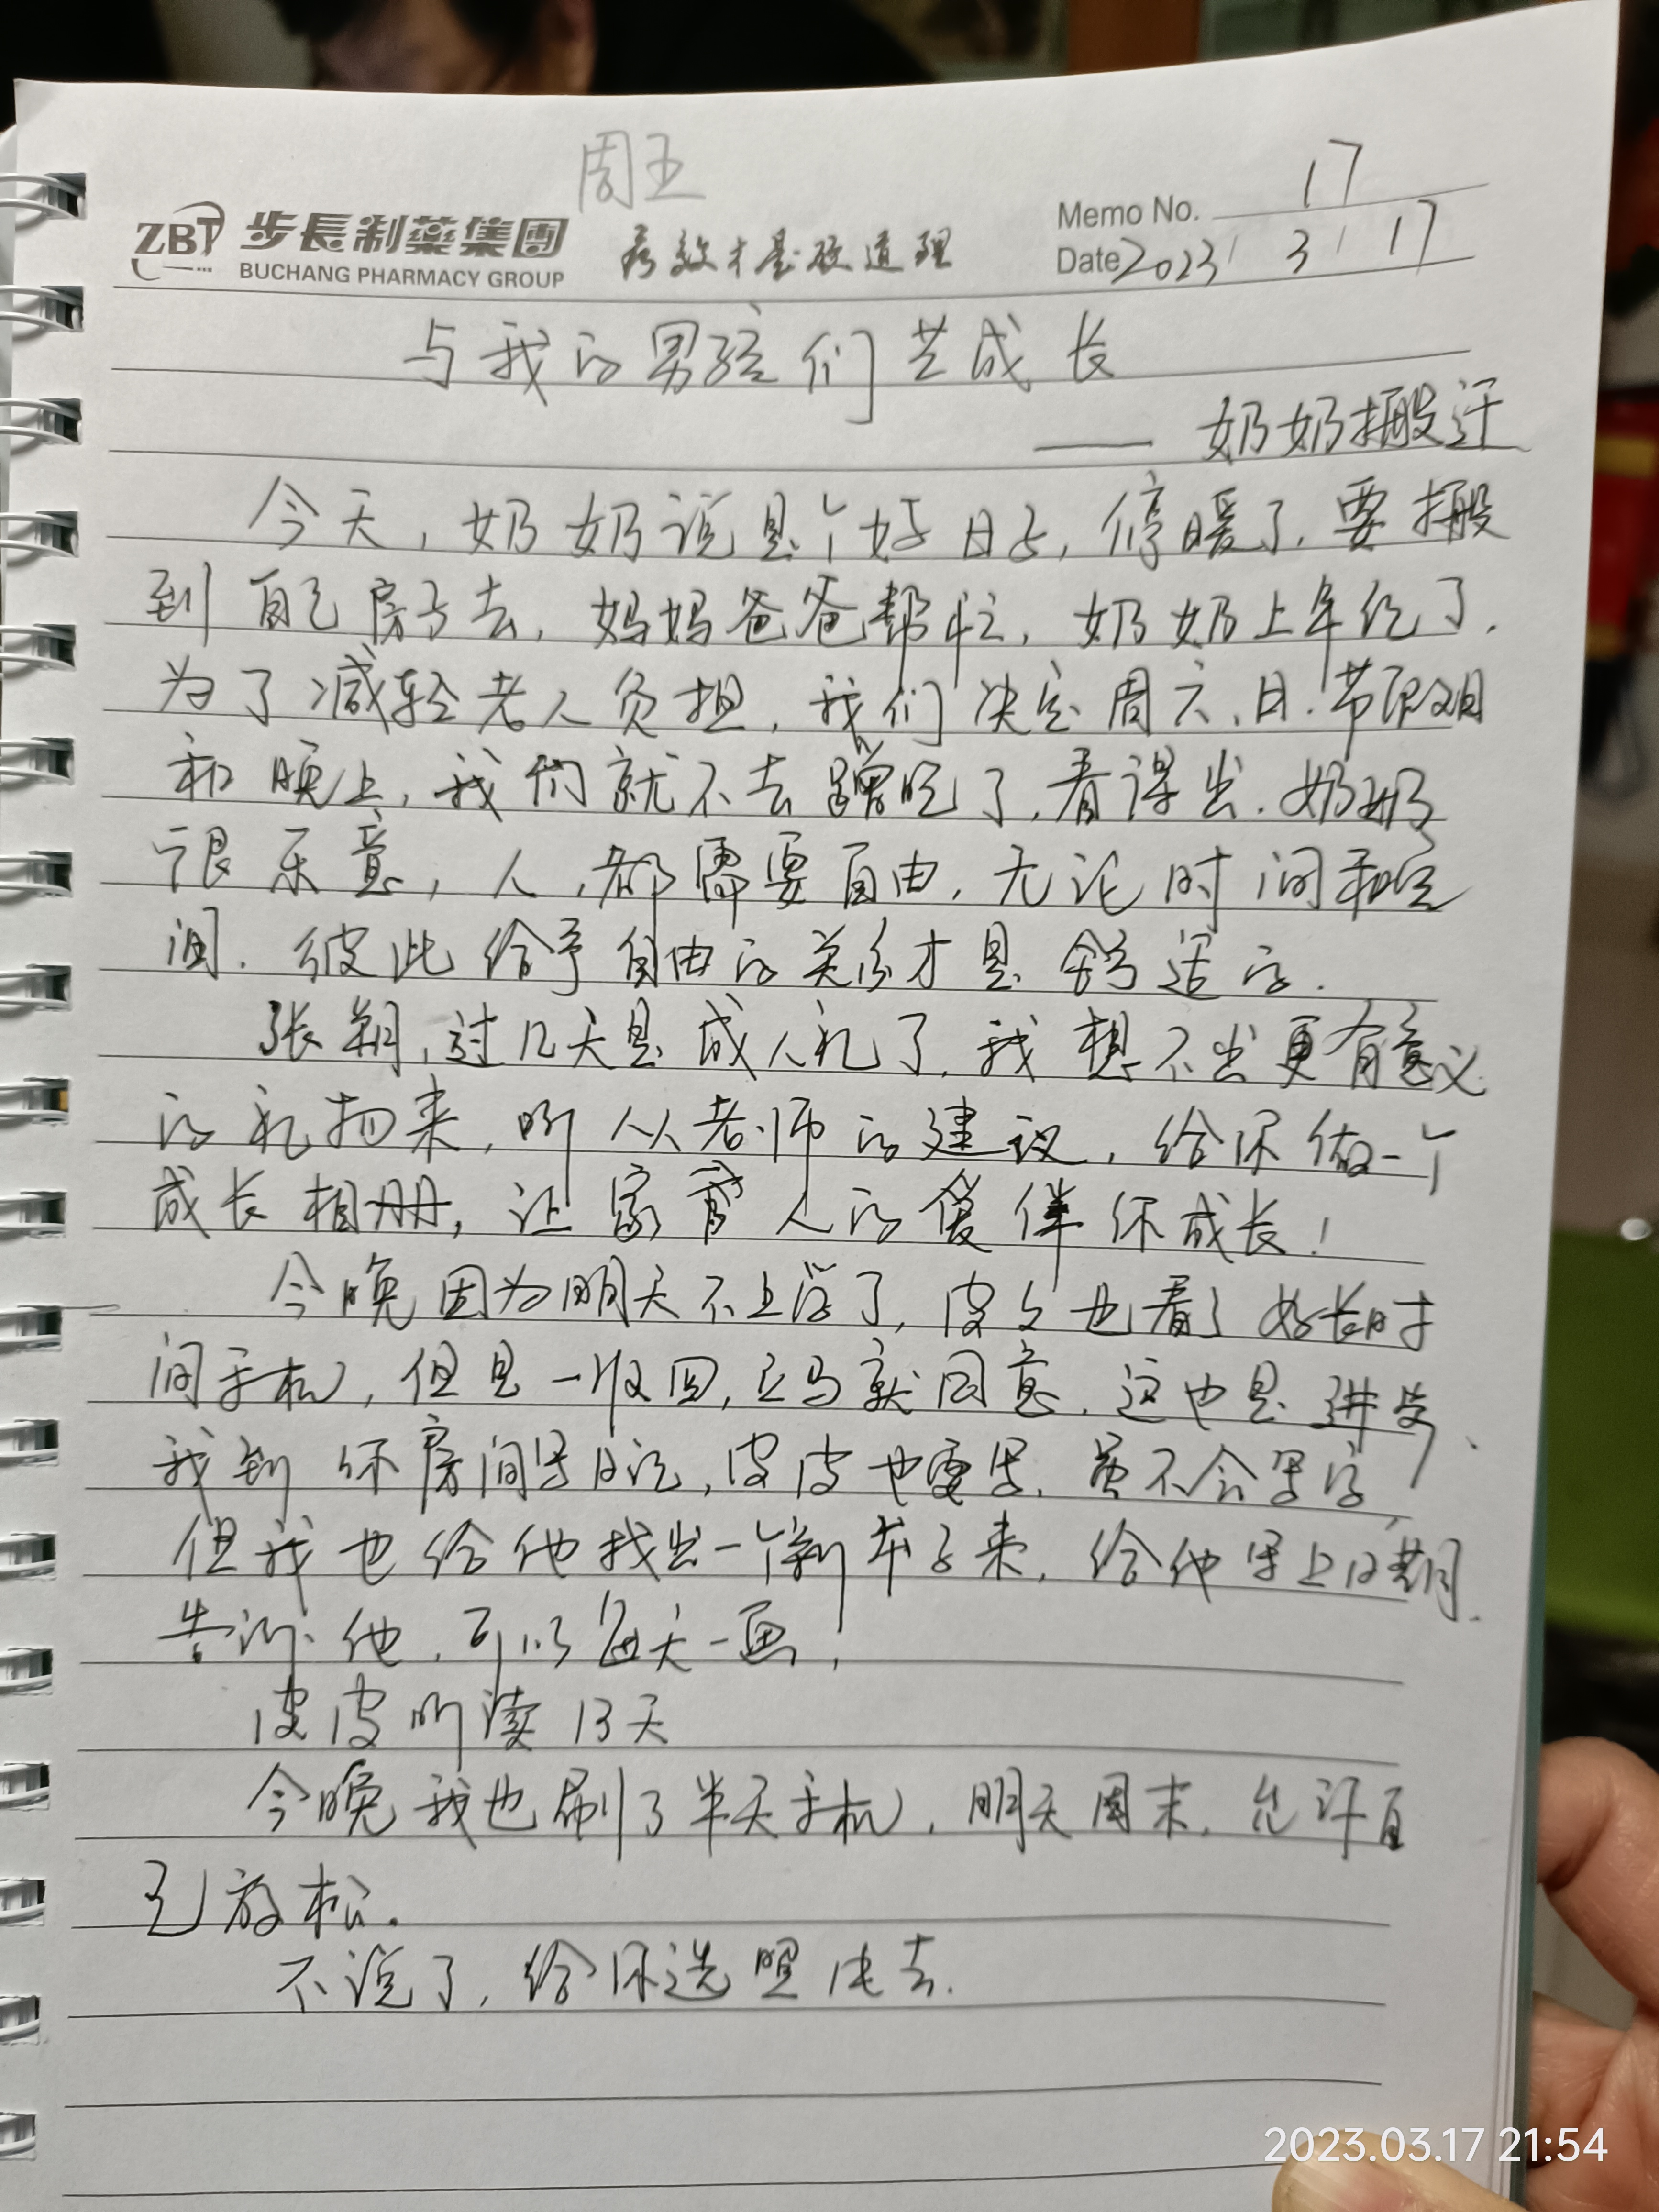 周五
ZBT 步長制藥集團 有效才是硬道理 Memo No. 17
BUCHANG PHARMACY GROUP Date 2023 / 3 / 17
与我的男孩们共成长
—— 奶奶搬迁
今天,奶奶说是个好日子,停暖了,要搬
到自己房子去,妈妈爸爸帮忙,奶奶上年纪了.
为了减轻老人负担,我们决定周六、日.节假期
和晚上,我们就不去蹭吃了,看得出.奶奶
很乐意,人,都需要自由,无论时间和空
间.彼此给予自由的关系才是舒适的.
张朔,过几天是成人礼了,我想不出更有意义
的礼物来,听从老师的建议,给你做一个
成长相册,让家人的爱伴你成长!
今晚因为明天不上学了,皮皮也看了好长时
间手机,但是一收回,立马就同意.这也是进步、
我到你房间写日记,皮皮也要写.虽不会写字,
但我也给他找出一个新本子来,给他写上日期.
告诉他,可以每天一画,
皮皮听读13天
今晚我也刷了半天手机,明天周末,允许自
己放松.
不说了,给你选照片去.
2023.03.17 21:54